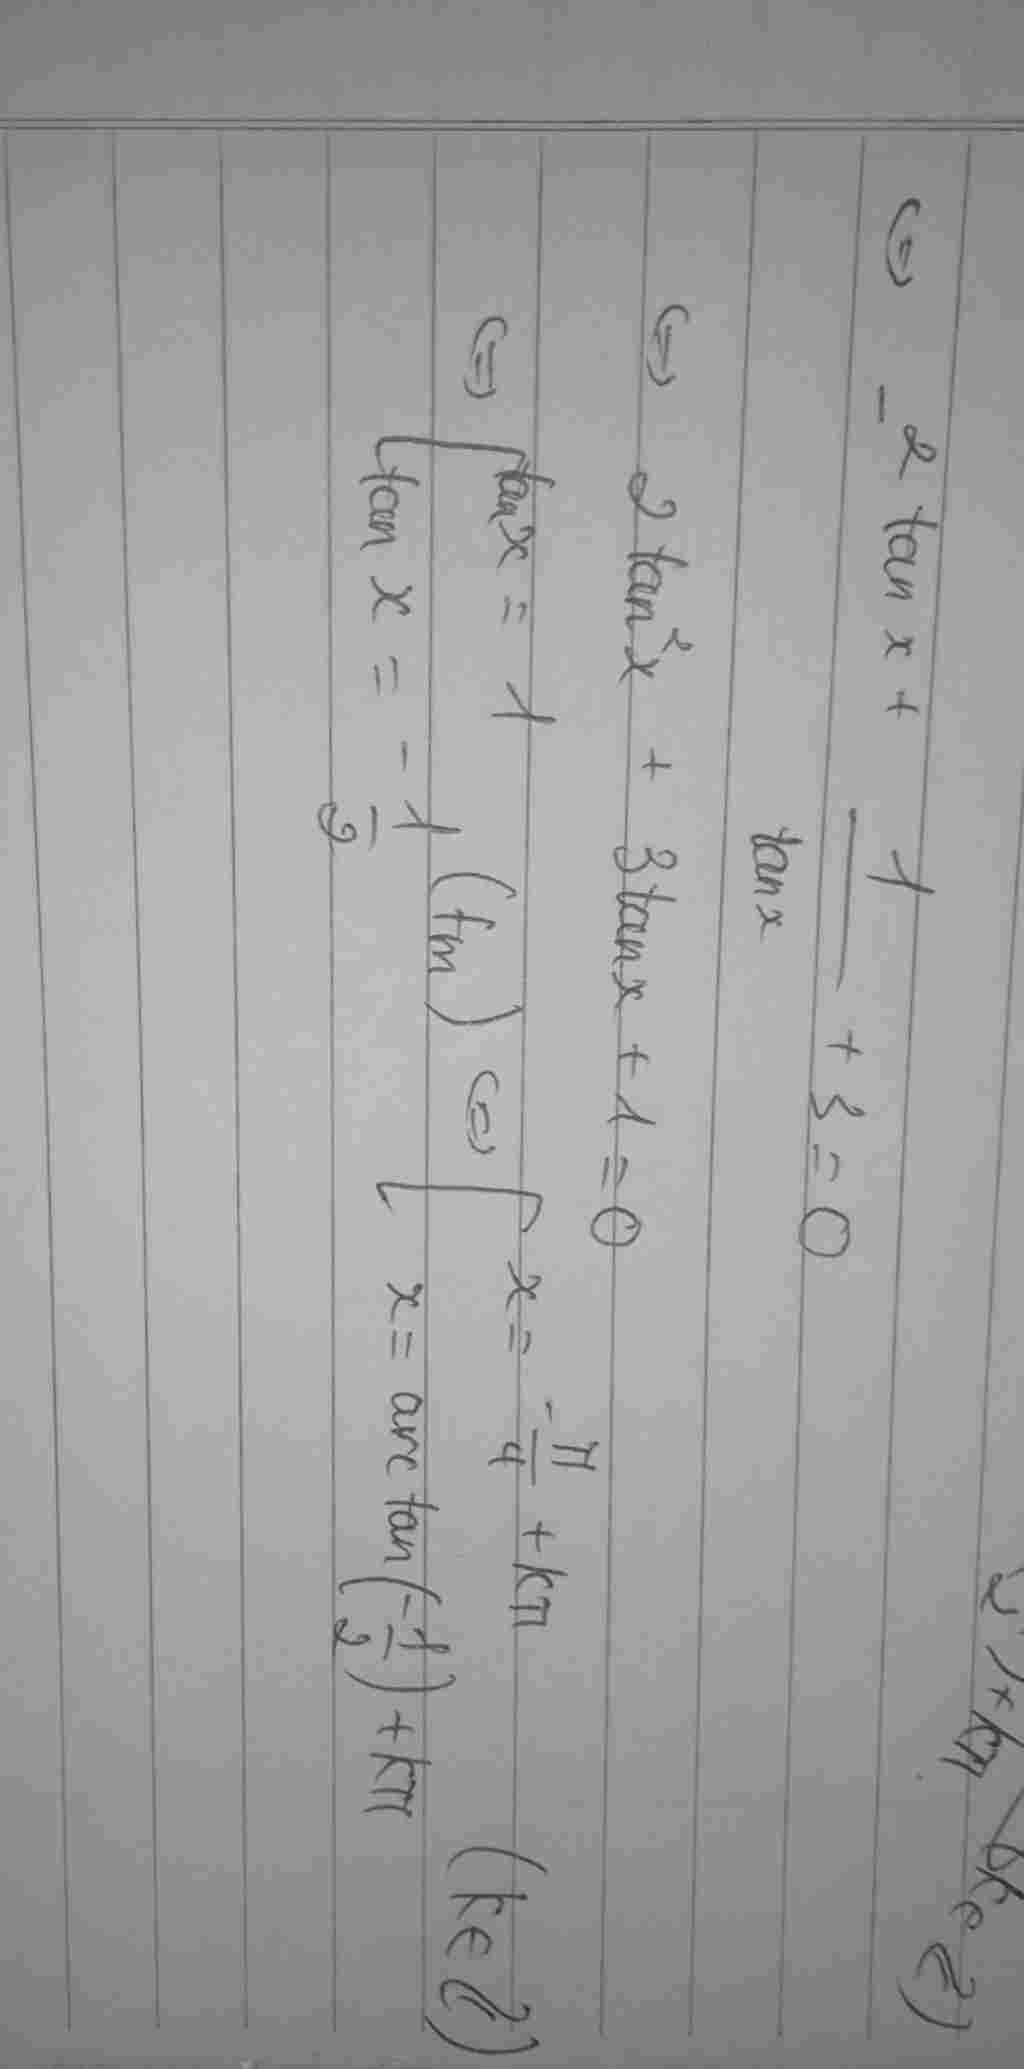 2) + kπ (k ∈ Z)
⇔ -2 tan x + 1/tan x + 3 = 0
⇔ 2 tan²x + 3 tan x + 1 = 0
⇔ [ tan x = 1 
tan x = -1/2 (tm) ⇔ [ x = -π/4 + kπ
x = arc tan(-1/2) + kπ (k ∈ Z)